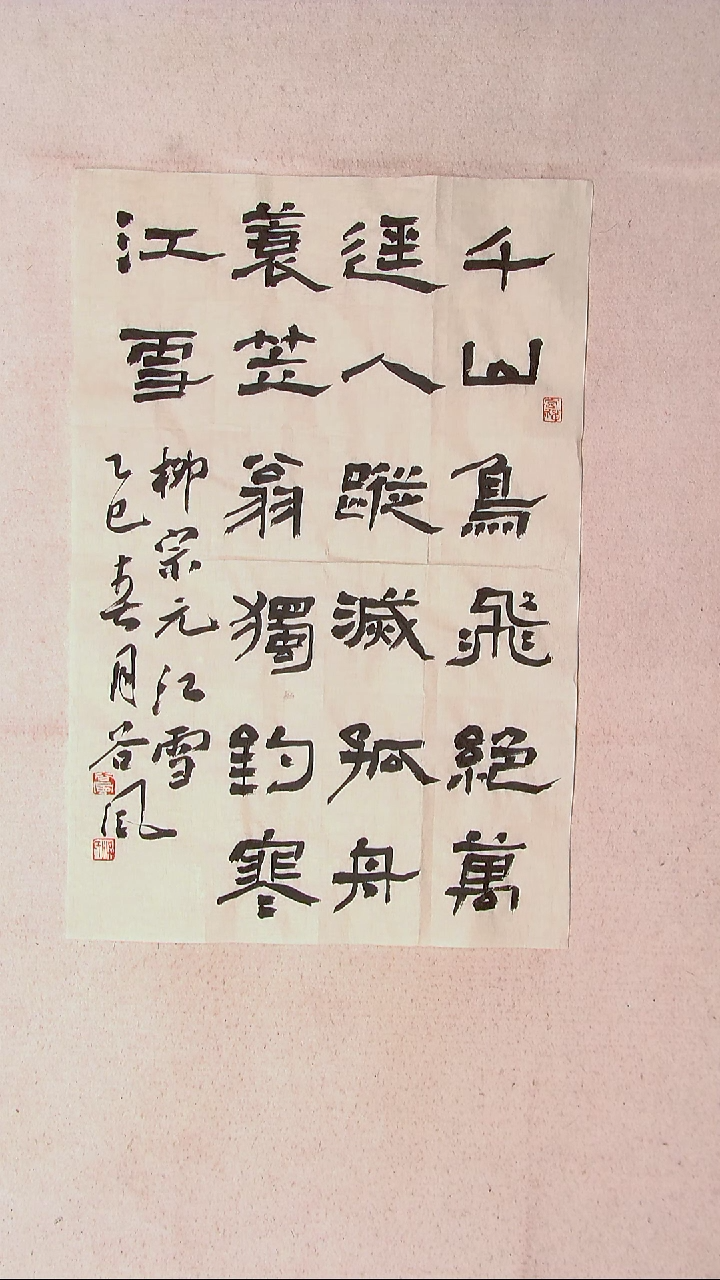 千山鳥飛絕萬
逕人蹤滅孤舟
蓑笠翁獨釣寒
江雪
柳宗元江雪
乙巳春月谷風